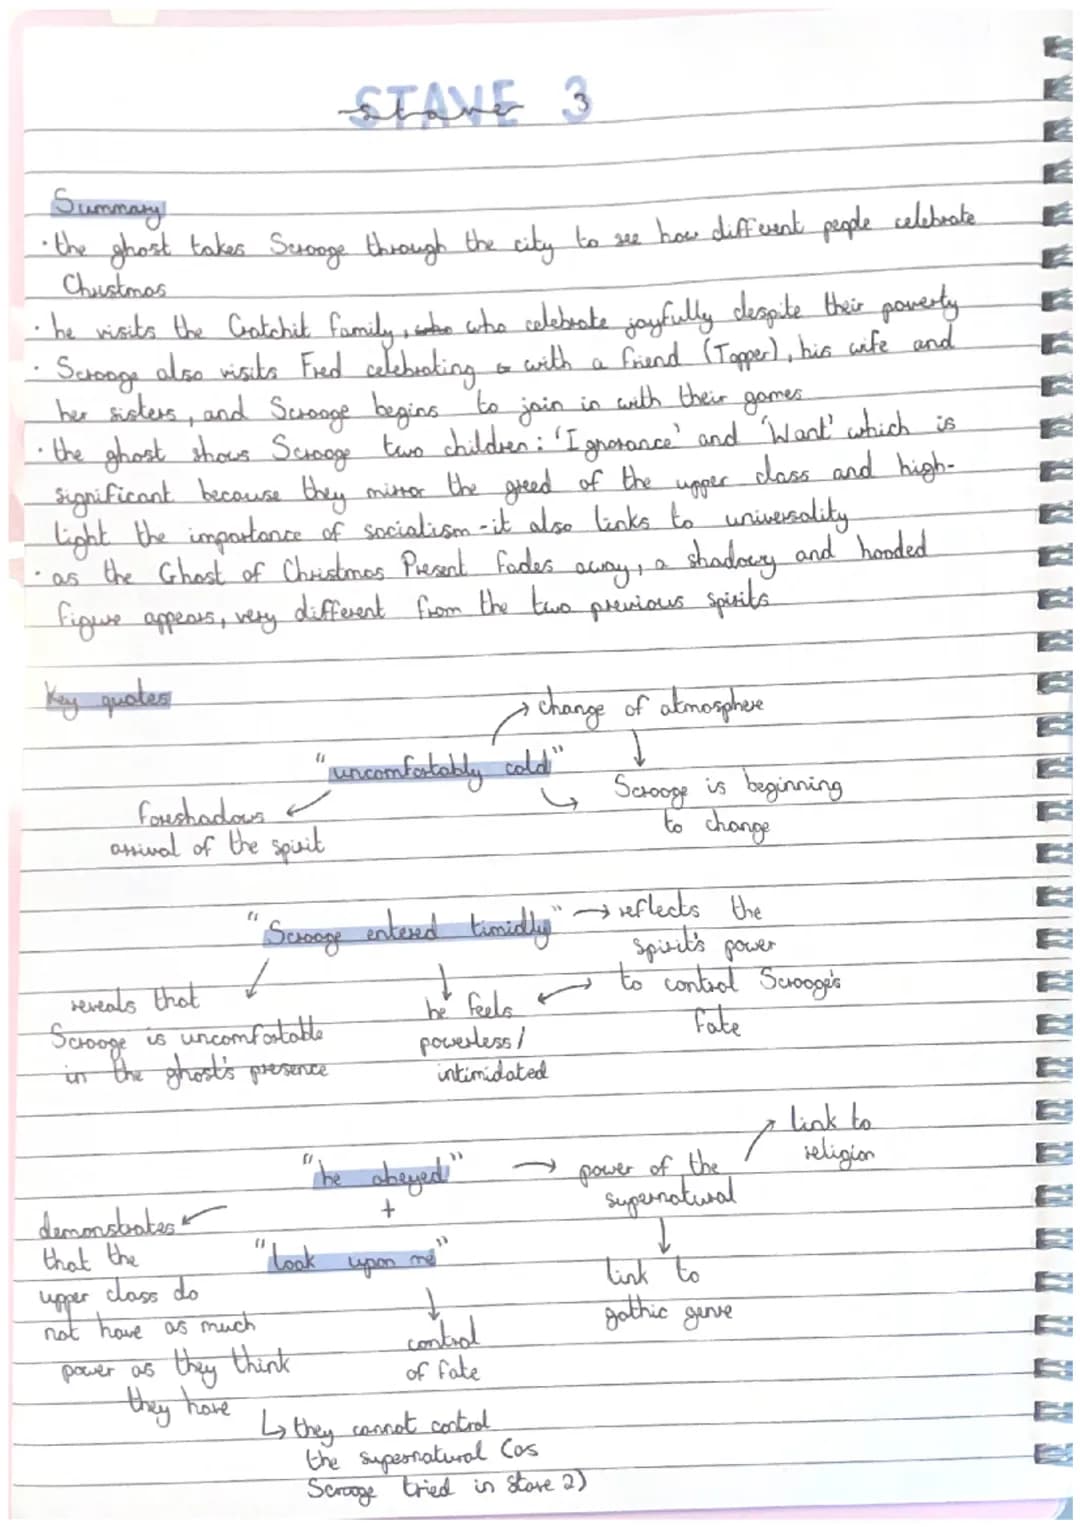 STAVE 3
stave
Summary
· the ghost takes Scrooge through the city to see how different people celebrate
Christmas
· he visits the Cratchit family, who celebrate joyfully despite their poverty
· Scrooge also visits Fred celebrating with a friend (Topper), his wife and
her sisters, and Scrooge begins to join in with their games
· the ghost shows Scrooge two children: 'Ignorance' and 'Want' which is
significant because they mirror the greed of the upper class and high-
light the importance of socialism - it also links to universality
· as the Ghost of Christmas Present fades away, a shadowy and hooded
figure appears, very different from the two previous spirits
Key quotes
→ change of atmosphere
"uncomfortably cold"
Scrooge is beginning
to change
foreshadows
arrival of the spirit
"Scrooge entered timidly" → reflects the
spirit's power
to control Scrooge's
fate
reveals that
Scrooge is uncomfortable
in the ghost's presence
he feels
powerless /
intimidated
"he obeyed" → power of the
supernatural
link to
religion
+
"look upon me"
link to
gothic genre
demonstrates
that the
upper class do
not have as much
power as they think
they have
control
of fate
↳ they cannot control
the supernatural (as
Scrooge tried in stave 2)